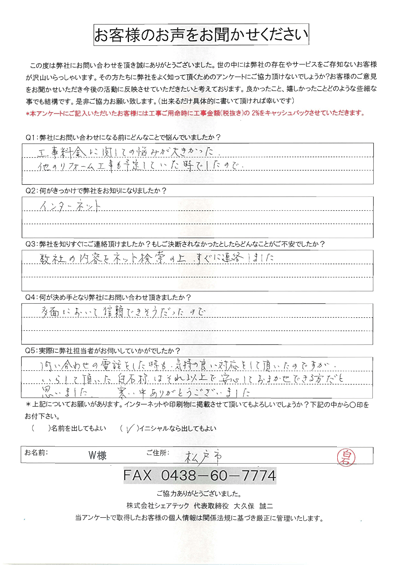 お客様のお声をお聞かせください
この度は弊社にお問い合わせを頂き誠にありがとうございました。世の中には弊社の存在やサービスをご存知ないお客様
が沢山いらっしゃいます。その方たちに弊社をよく知って頂くためのアンケートにご協力頂けないでしょうか?お客様のご意見
をお聞かせいただき今後の活動に反映させていきたいと考えております。良かったこと、嬉しかったことどのような些細な
事でも結構です。是非ご協力お願い致します。(出来るだけ具体的に書いて頂ければ幸いです)
*本アンケートにご記入いただいたお客様には工事ご用命時に工事金額(税抜き)の2%をキャッシュバックさせていただきます。
Q1:弊社にお問い合わせになる前にどんなことで悩んでいましたか?
工事料金に関しての悩みが大きかった。
他のリフォーム工事も予定していた時でしたので。
Q2:何がきっかけで弊社をお知りになりましたか?
インターネット
Q3:弊社を知りすぐにご連絡頂けましたか?もしご決断されなかったとしたらどんなことがご不安でしたか?
数社の内容をネット検索の上、すぐに連絡しました
Q4:何が決め手となり弊社にお問い合わせ頂きましたか?
多面において信頼できそうだったので
Q5:実際に弊社担当者がお伺いしていかがでしたか?
問い合わせの電話をした時も、気持の良い対応をして頂いたのですが、
いらして頂いた白石様はそれ以上で安心しておまかせできる方だと
思いました 寒い中ありがとうございました
*上記についてお願いがあります。インターネットや印刷物に掲載させて頂いてもよろしいでしょうか?下記の中から○印を
お付下さい。
( )名前を出してもよい (✓)イニシャルなら出してもよい
お名前: W様 ご住所: 松戸市 白石
FAX 0438-60-7774
ご協力ありがとうございました。
株式会社シェアテック 代表取締役 大久保 誠二
当アンケートで取得したお客様の個人情報は関係法規に基づき厳正に管理いたします。